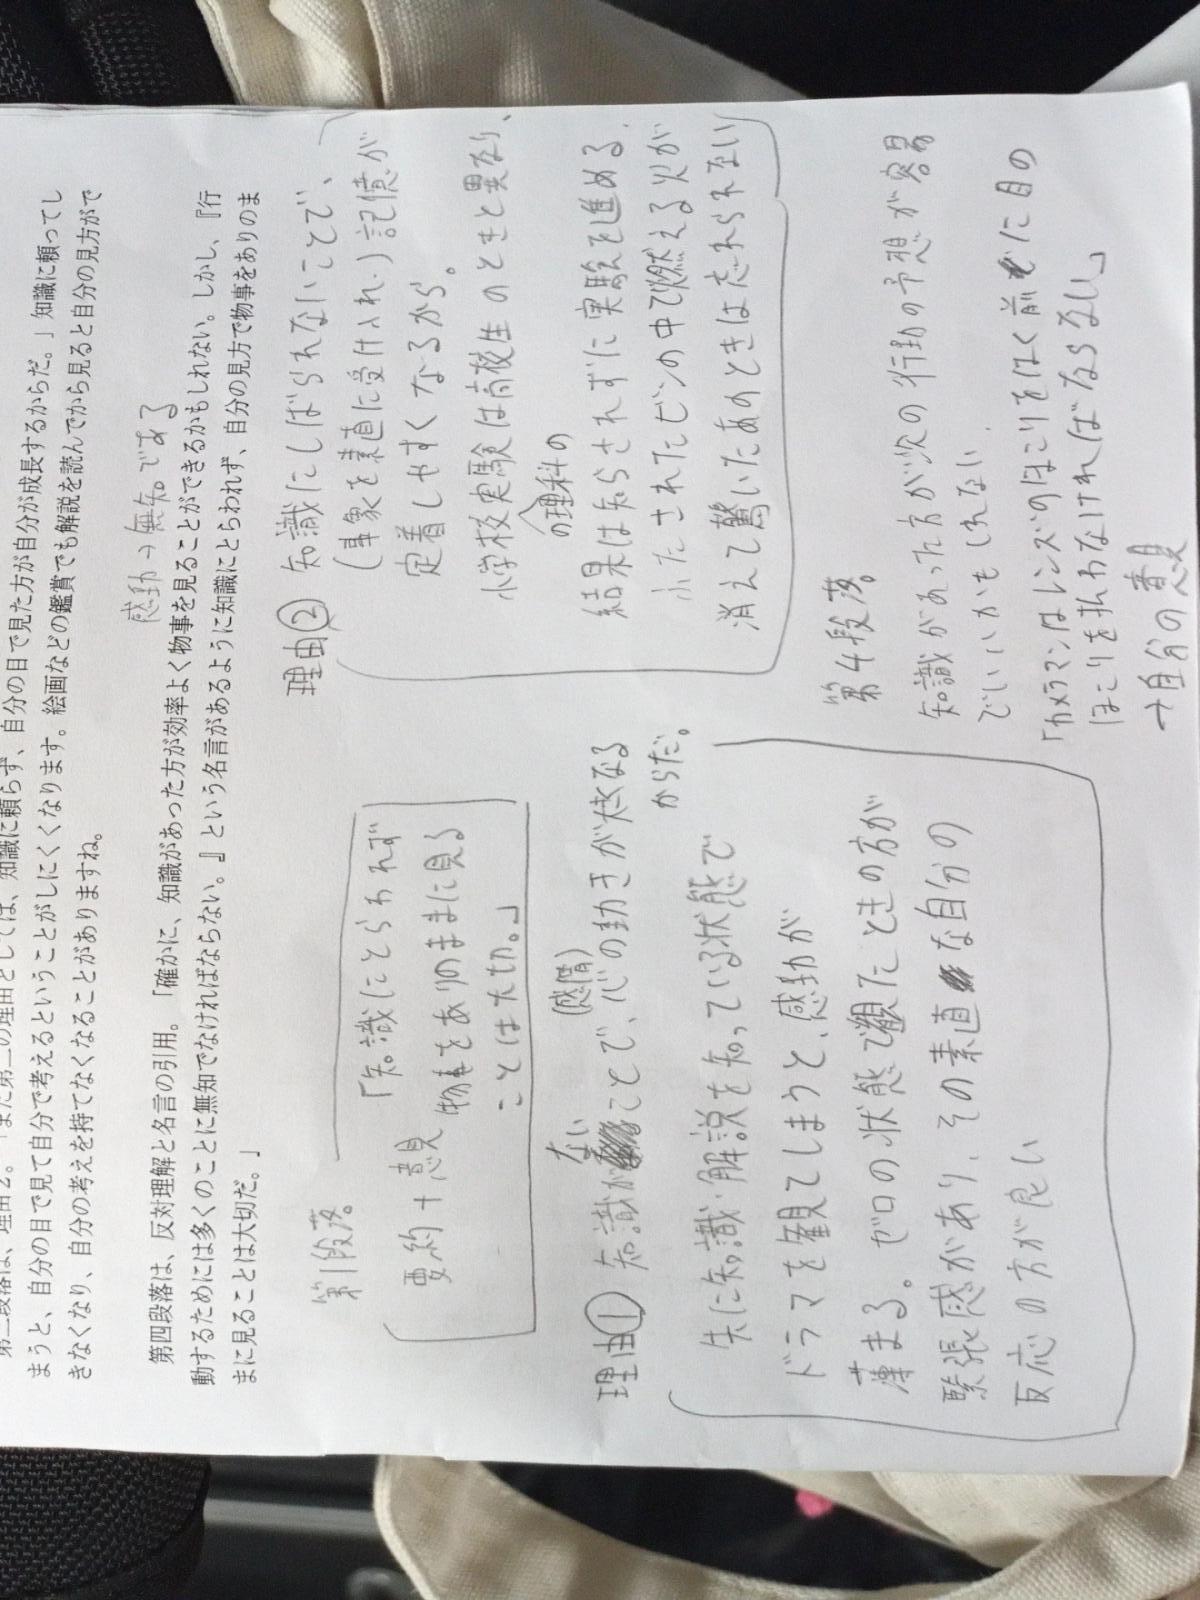 第三段落は、理由2。「また第二の理由としては、知識に頼らず、自分の目で見た方が自分が成長するからだ。」知識に頼ってし
まうと、自分の目で見て自分で考えるということがしにくくなります。絵画などの鑑賞でも解説を読んでから見ると自分の見方がで
きなくなり、自分の考えを持てなくなることがありますね。
感動→無知である
第四段落は、反対理解と名言の引用。「確かに、知識があった方が効率よく物事を見ることができるかもしれない。しかし、『行
動するためには多くのことに無知でなければならない。』という名言があるように知識にとらわれず、自分の見方で物事をありのま
まに見ることは大切だ。」
第1段落。
要約+意見
「知識にとらわれず
物事をありのままに見る
ことは大切。」
理由①
知識がない
ことで、心の動きが大きくなる
(感情)
からだ。
先に知識・解説を知っている状態で
ドラマを観てしまうと、感動が
薄まる。ゼロの状態で観たときの方が
緊張感があり、その素直な自分の
反応の方が良い
理由②
知識にしばられないことで、
(事象を素直に受け入れ)記憶が
定着しやすくなるから。
小学校実験は高校生のときと異なり、
の理科の
結果は知らされずに実験を進める。
ふたされたビンの中で燃える火が
消えて驚いたあのときは忘れられない
第4段落。
知識があった方が次の行動の予想が容易
でいいかもしれない
「カメラマンはレンズのほこりをはく前に目の
ほこりを払わなければならない」
→自分の意見